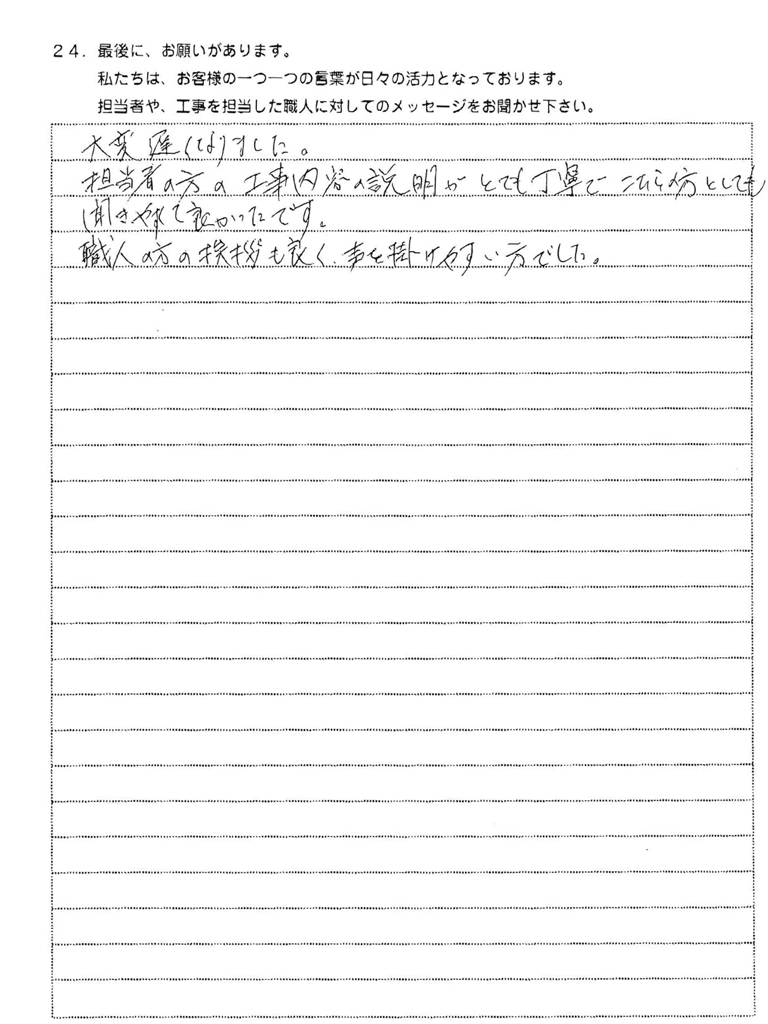 24. 最後に、お願いがあります。
私たちは、お客様の一つ一つの言葉が日々の活力となっております。
担当者や、工事を担当した職人に対してのメッセージをお聞かせ下さい。
大変遅くなりました。
担当者の方の工事内容の説明がとても丁寧でこちらの方としても
聞きやすくて良かったです。
職人の方の挨拶も良く、声を掛けやすい方でした。